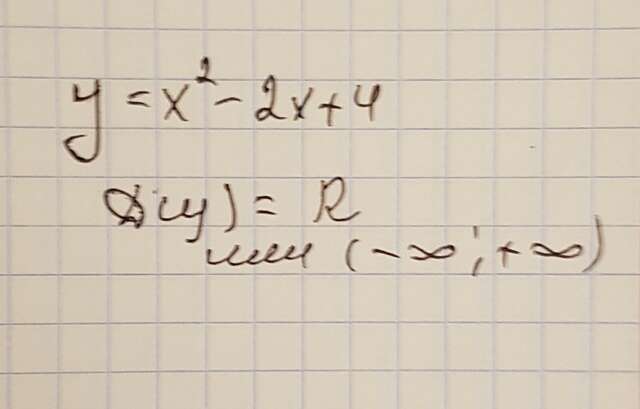 y = x² - 2x + 4
D(y) = R
или (-∞; +∞)